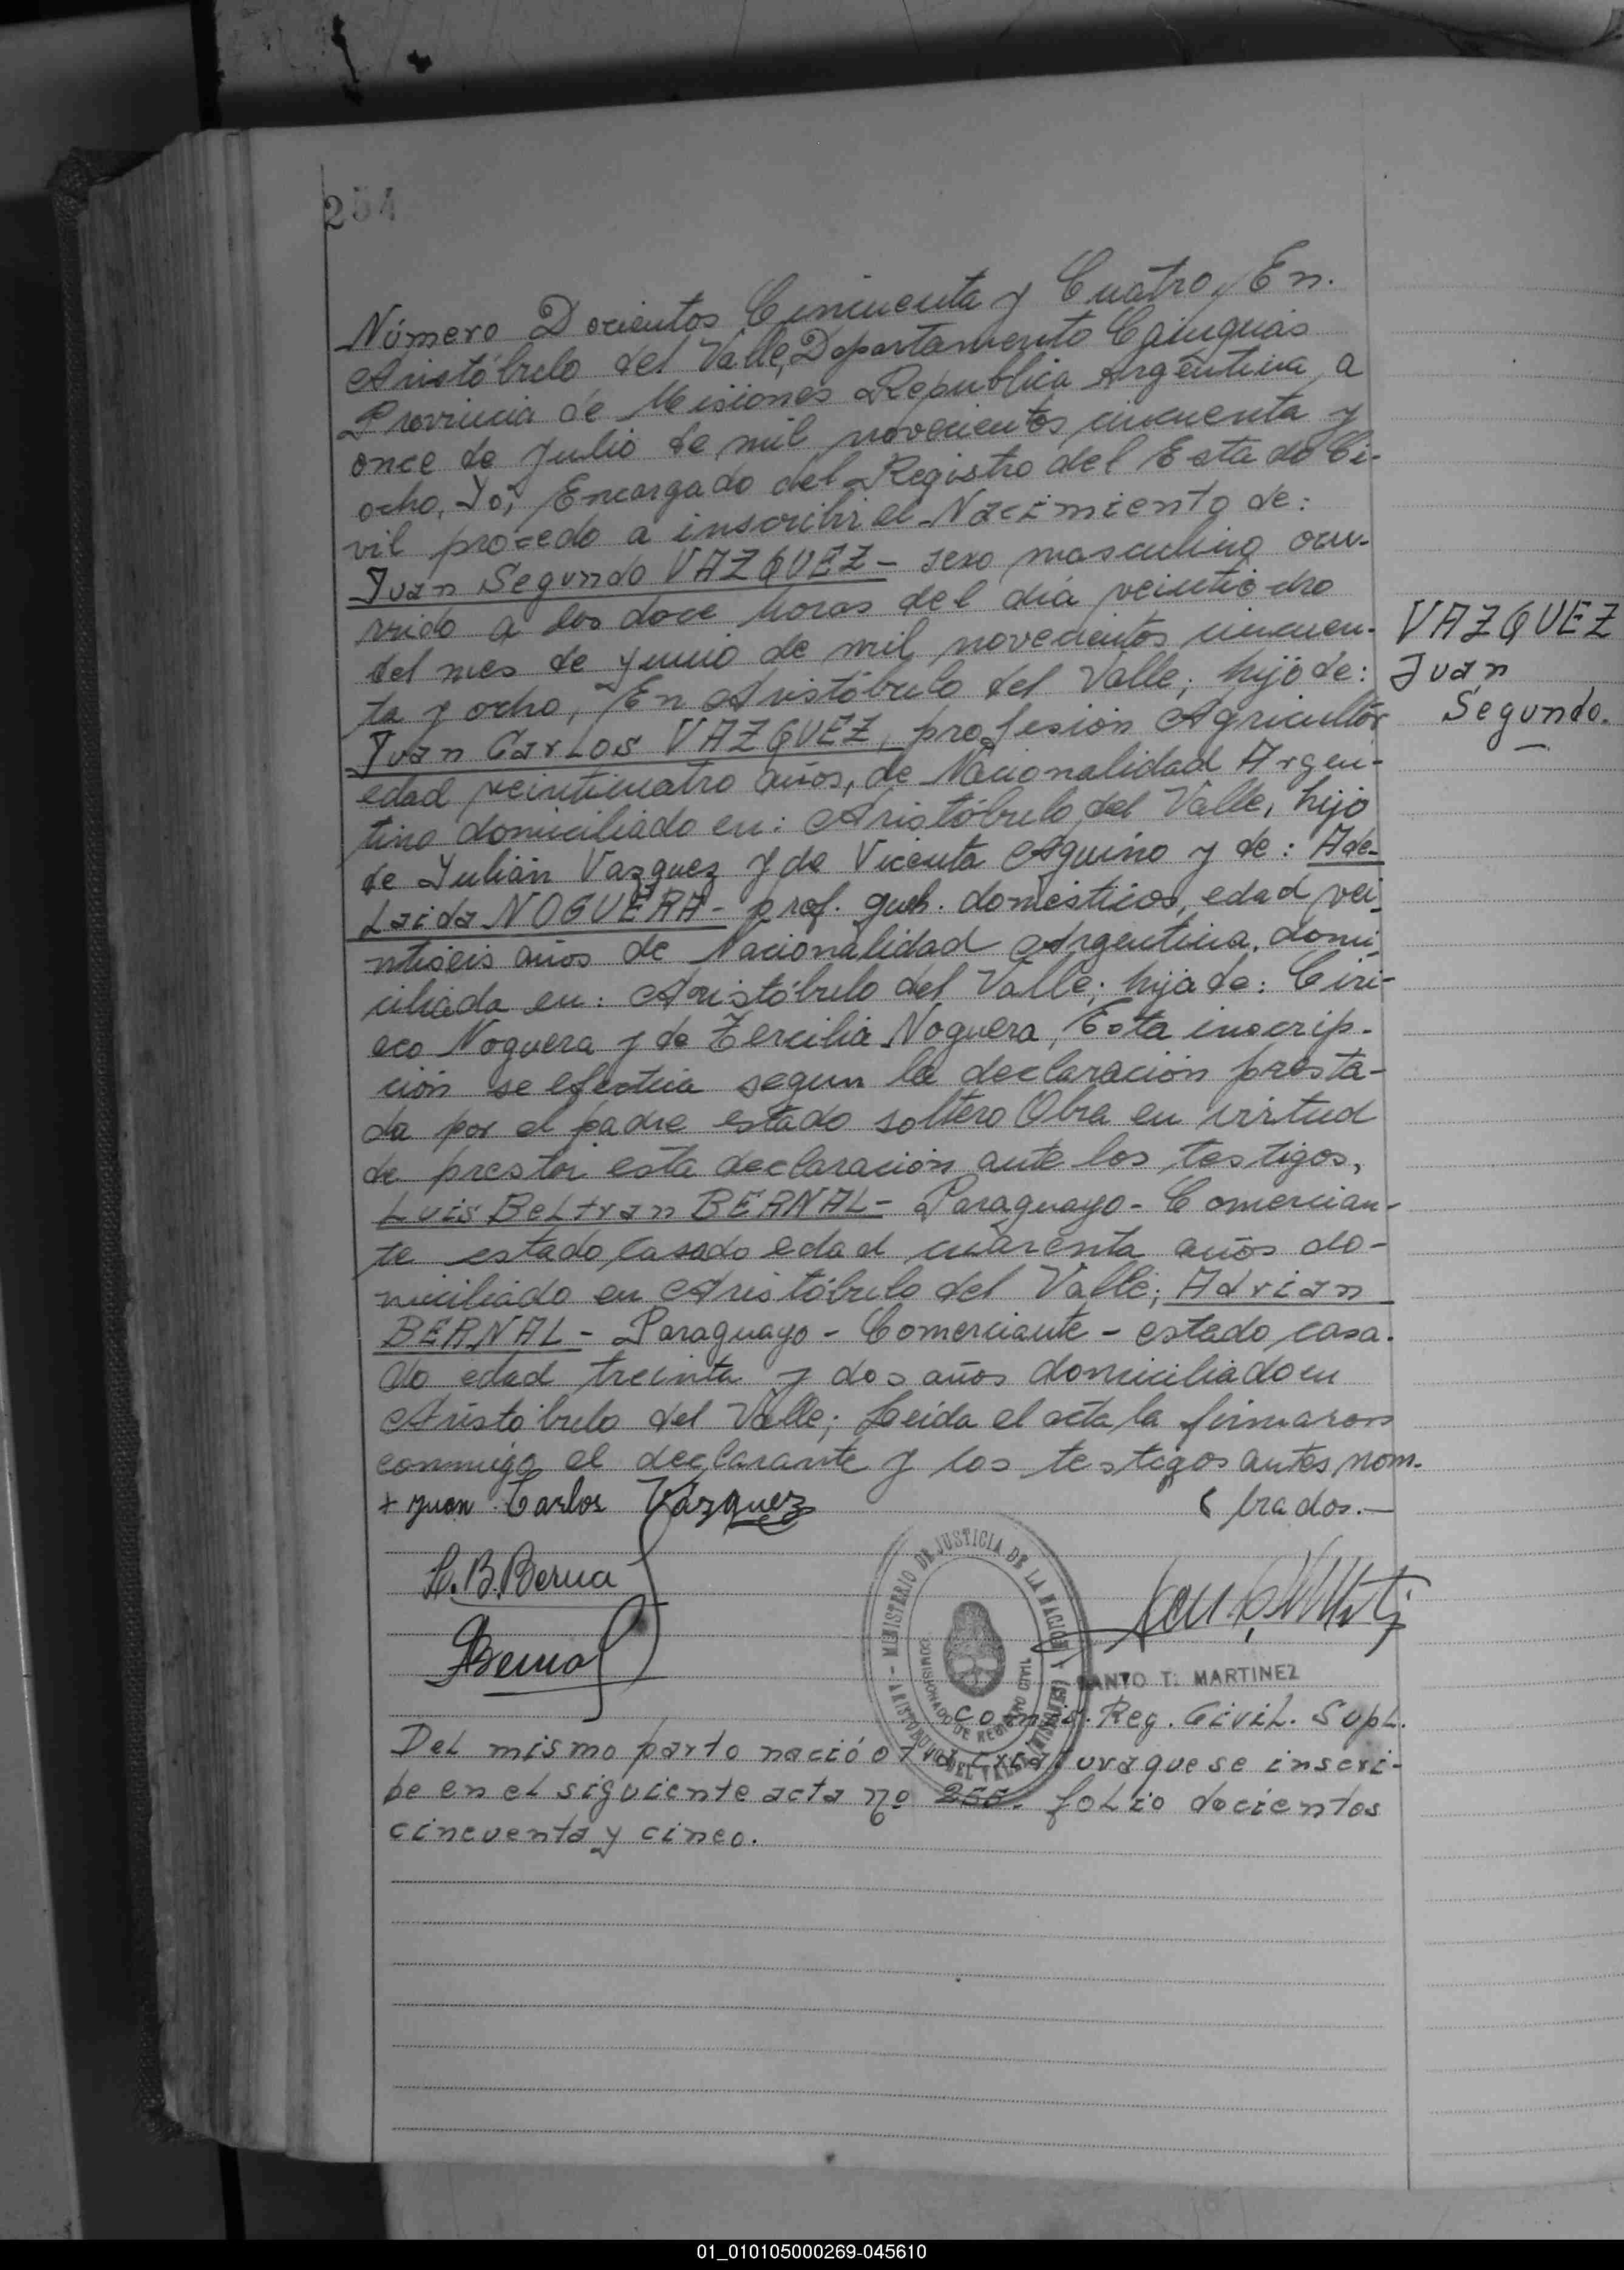 254
Número Docientos Cincuenta y Cuatro, En.
Aristóbulo del Valle, Departamento Cainguás
Provincia de Misiones Republica Argentina, a
once de Julio de mil novecientos cincuenta y
ocho, Yo, Encargado del Registro del Estado Ci-
vil procedo a inscribir el Nacimiento de:
Juan Segundo VAZQUEZ - sexo masculino ocu-
rrido a las doce horas del día veintiocho
del mes de Junio de mil novecientos cincuen-
ta y ocho, En Aristóbulo del Valle; hijo de:
VAZQUEZ
Juan
Segundo.
Juan Carlos VAZQUEZ, profesión Agricultor
edad veinticuatro años, de Nacionalidad Argen-
tino domiciliado en: Aristóbulo del Valle, hijo
de Julián Vazquez y de Vicenta Aquino y de: Ade-
laida NOGUERA - prof. queh. domésticos, edad vei-
ntiseis años de Nacionalidad Argentina, domi-
ciliada en: Aristóbulo del Valle; hija de: Ciri-
aco Noguera y de Tercilia Noguera, Esta inscrip-
ción se efectúa segun la declaración presta-
da por el padre estado soltero Obra en virtud
de prestar esta declaración ante los testigos,
Luis Beltran BERNAL - Paraguayo - Comercian-
te estado casado edad cuarenta años do-
miciliado en Aristóbulo del Valle; Adrian
BERNAL - Paraguayo - Comerciante - estado casa-
do edad treinta y dos años domiciliado en
Aristóbulo del Valle; Leida el acta la firmaron
conmigo el declarante y los testigos antes nom-
brados.-
+ Juan Carlos Vázquez
L. B. Bernal
ABernal
MINISTERIO DE JUSTICIA DE LA NACION
ARISTOBULO DEL VALLE (MISIONES)
COMISIONADO DE REGISTRO CIVIL
SANTO T. MARTINEZ
Comis. Reg. Civil. Supl.
Del mismo parto nació otra criatura que se inscri-
be en el siguiente acta nº 255. folio docientos
cincuenta y cinco.
01_010105000269-045610